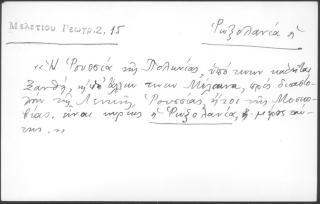 Μελετίου Γεωγρ. 2, 15
Ῥωξολανία ἡ
«Ἡ Ῥουσσία τῆς Πολωνίας, ὑπό τινων καλεῖται
Ξανθή, καὶ ὑπ' ἄλλων τινων Μέλαινα, πρὸς διαστο-
λὴν τῆς Λευκῆς Ῥουσσίας, ἤτοι τῆς Μοσχο-
βίας. εἶναι κυρίως ἡ Ῥωξολανία, ἢ μέρος ταύ-
της.»